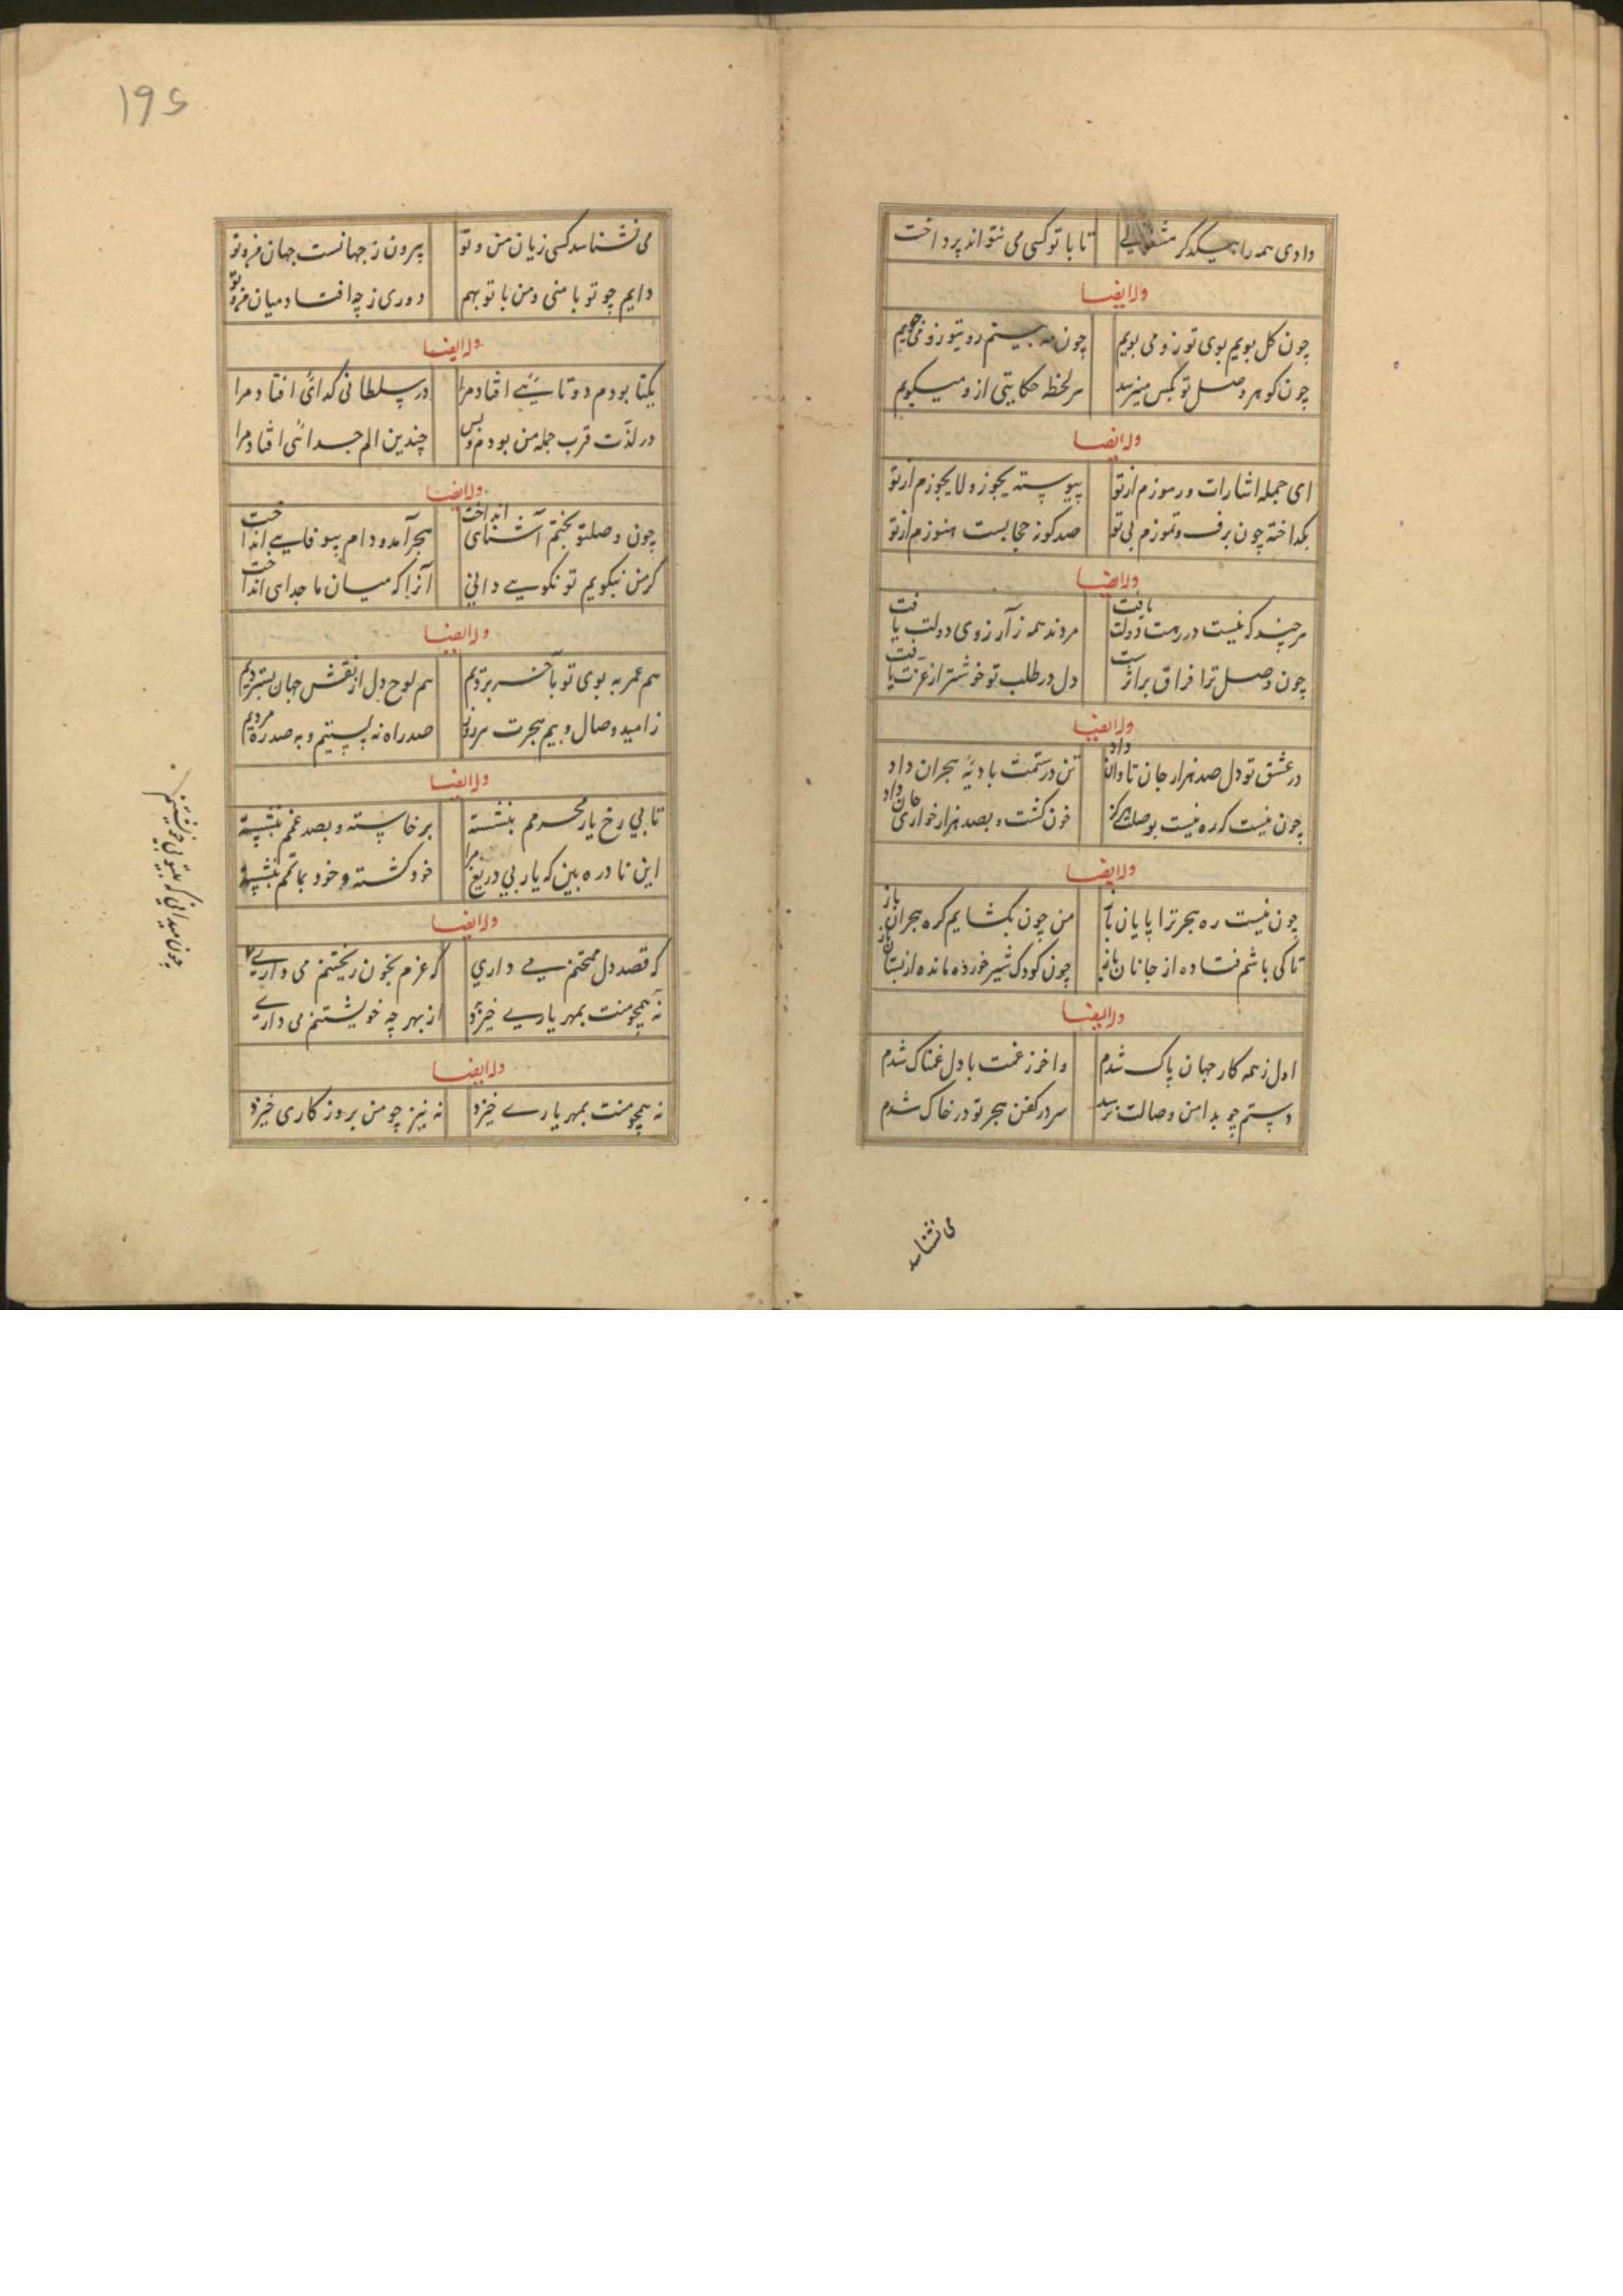 دادی همه را بیکدگر مشغولی تا با تو کسی می نتواند پرداخت
وله ایضا
چون گل بویم بوی تو زو می بویم چون مه بینم روی تو زو می جویم
چون گوهر وصل تو بکس می نرسد هر لحظه حکایتی ازو میگویم
وله ایضا
ای جمله اشارات و رموزم از تو پیوسته یجوز و لا یجوزم از تو
بگداخته چون برف و تموزم بی تو صد گونه حجابست هنوزم از تو
وله ایضا
هر چند که نیست در رهت دولت یافت مردند همه ز آرزوی دولت یافت
چون وصل ترا فراق براثر است دل در طلب تو خوشتر از عزت یافت
وله ایضا
در عشق تو دل صد هزار جان تاوان داد تن در ستمت بادیهٔ هجران داد
چون نیست که ره نیست بوصلت هرگز خون گشت و بصد هزار خواری جان داد
وله ایضا
چون نیست ره هجر ترا پایان باز من چون بگشایم گره هجران باز
تا کی باشم فتاده از جانان باز چون کودک شیر خورده مانده از بستان باز
وله ایضا
اول ز همه کار جهان پاک شدم و آخر ز غمت با دل غمناک شدم
دستم چو بدامن وصالت نرسید سر در کفن هجر تو در خاک شدم
می نشناسد
195
می نشناسد کسی زیان من و تو بیرون ز جهانست جهان من و تو
دایم چو تو با منی و من با تو بهم دوری ز چه افتاد میان من و تو
وله ایضا
یکتا بودم دوتائیی افتاد مرا در سلطانی گدائی افتاد مرا
در لذت قرب جمله من بودم و بس چندین الم جدائی افتاد مرا
وله ایضا
چون وصلتو بختم آشنای انداخت هجر آمد و دام بیوفایی انداخت
گر من نیگویم تو نکویی دانی آنرا که میان ما جدای انداخت
وله ایضا
هم عمر به بوی تو بآخر بردیم هم لوح دل از نقش جهان بستردیم
ز امید وصال و بیم هجرت هر روز صد راه نه پستیم و به صد ره مردیم
وله ایضا
تا بی رخ یار محرمم بنشسته برخاسته و بصد غمم بنشسته
این نادره بین که یار بی دریغ مرا خود کشته و خود بماتمم بنشسته
وله ایضا
که قصد دل ممتحنم می داری که عزم بخون ریختنم می داری
نه همچو منت بمهر یاری خیزد از بهر چه خویشتنم می داری
وله ایضا
نه همچو منت بمهر یاری خیزد نه نیز چو من بروزگاری خیزد
چون میدانی که بیتو بی خویشتنم